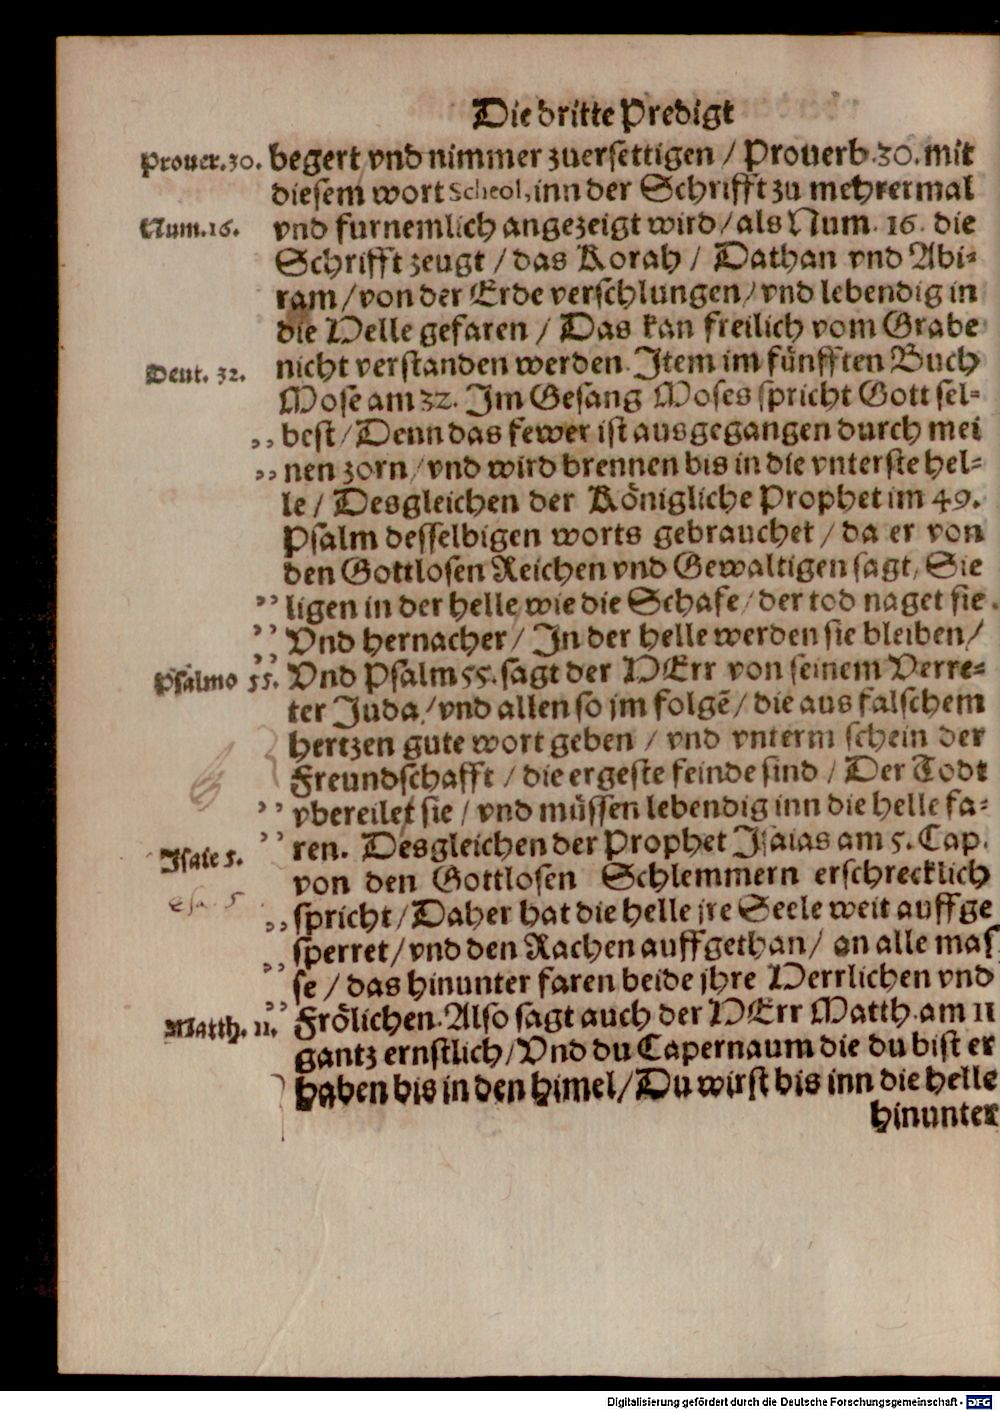 Die dritte Predigt
Prouer.30. begert vnd nimmer zuersettigen / Prouerb.30. mit
diesem wort Scheol, inn der Schrifft zu mehrermal
Num.16. vnd furnemlich angezeigt wird / als Num. 16. die
Schrifft zeugt / das Korah / Dathan vnd Abi-
ram / von der Erde verschlungen / vnd lebendig in
die Helle gefaren / Das kan freilich vom Grabe
Deut. 32. nicht verstanden werden. Item im fünfften Buch
Mose am 32. Im Gesang Moses spricht Gott sel-
,, best / Denn das fewer ist ausgegangen durch mei
,, nen zorn / vnd wird brennen bis in die vnterste hel-
le / Desgleichen der Königliche Prophet im 49.
Psalm desselbigen worts gebrauchet / da er von
den Gottlosen Reichen vnd Gewaltigen sagt, Sie
,, ligen in der helle wie die Schafe / der tod naget sie.
,, Vnd hernacher / In der helle werden sie bleiben /
,,
Psalmo 55. Vnd Psalm 55. sagt der HErr von seinem Verre-
ter Juda / vnd allen so jm folgẽ / die aus falschem
hertzen gute wort geben / vnd vnterm schein der
Freundschafft / die ergeste feinde sind / Der Todt
,, vbereilet sie / vnd müssen lebendig inn die helle fa-
,, ren. Desgleichen der Prophet Isaias am 5. Cap.
Isaie 5.
von den Gottlosen Schlemmern erschrecklich
Esa. 5
,, spricht / Daher hat die helle jre Seele weit auffge
sperret / vnd den Rachen auffgethan / an alle mas
,, se / das hinunter faren beide jhre Herrlichen vnd
,, Frölichen. Also sagt auch der HErr Matth. am 11
Matth. 11.
gantz ernstlich / Vnd du Capernaum die du bist er
haben bis in den himel / Du wirst bis inn die helle
hinunter
Digitalisierung gefördert durch die Deutsche Forschungsgemeinschaft - DFG